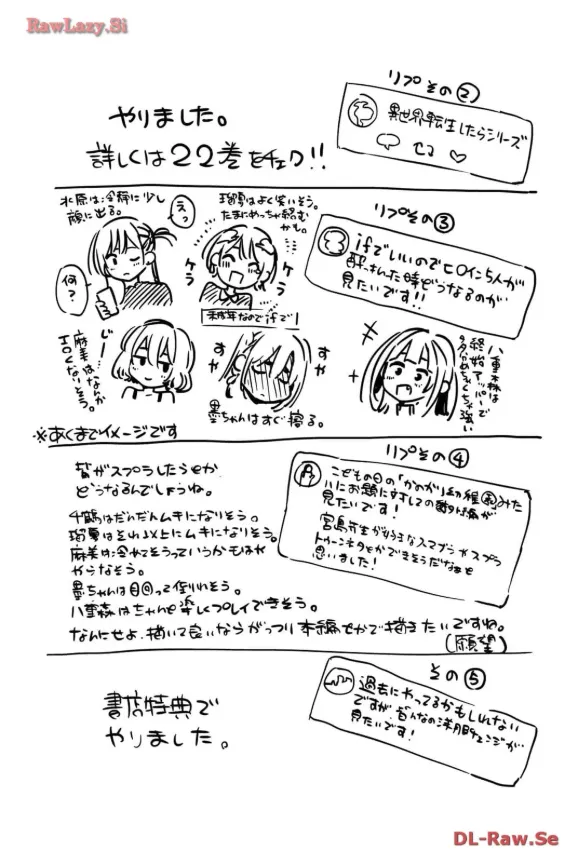 RawLazy.Si
リプその②
異世界転生したらシリーズ
やりました。
詳しくは22巻をチェク!!
リプその③
ifでいいのでヒロイン5人が
酔っされた時どうなるのが
見たいです!!
水原は冷静に少し
顔に出る。
えっ
何?
瑠夏はよく笑いそう。
たまにめっちゃ絡む
かも。
ケラ
ケラ
未成年なのでifで!
じー
麻美は…なんか
エロくなりそう。
すや
すや
墨ちゃんはすぐ寝る。
八重森は
終始アッパーで
めちゃくちゃ強い
※あくまでイメージです
リプその④
こどもの日の「かのかり幼稚園」みた
いにお題に対しての
見たいです!
宮島先生が好きなスマブラやスプラ
トゥーンネタとかできそうだなぁと
思いました!
皆がスプラしたらとか
どうなるんでしょうね。
千鶴はだんだんムキになりそう。
瑠夏はそれ以上にムキになりそう。
麻美は冷めてそうっていうかもはや
やらなそう。
墨ちゃんは目回って倒れそう。
八重森はちゃんと楽しくプレイできそう。
なんにせよ、描いて良いならがっつり本編とかで描きたいですね。
(願望)
その⑤
過去にやってるかもしれない
ですが皆んなの洋服チェンジが
見たいです!
書店特典で
やりました。
DL-Raw.Se